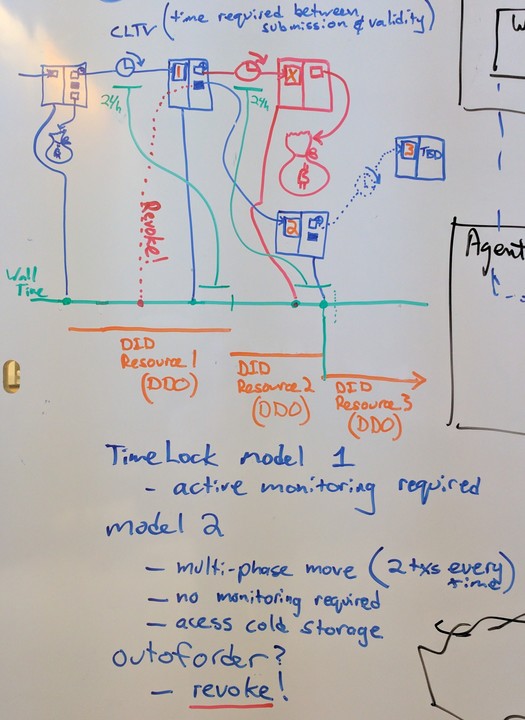 CLTV (time required between
submission & validity)
W
1
X
24h
24h
B
B
3 TBD
2
Revoke!
Agent
Wall
Time
DID
Resource 1
(DDO)
DID
Resource 2
(DDO)
DID
Resource 3
(DDO)
TimeLock model 1
- active monitoring required
model 2
- multi-phase move (2 txs every
time)
- no monitoring required
- acess cold storage
out of order?
- revoke!